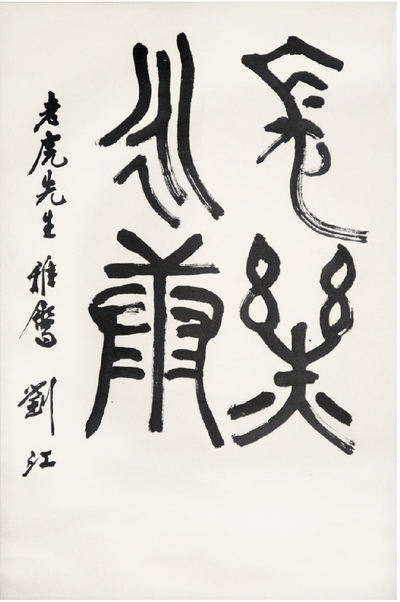 長樂
永康
老虎先生雅 劉江